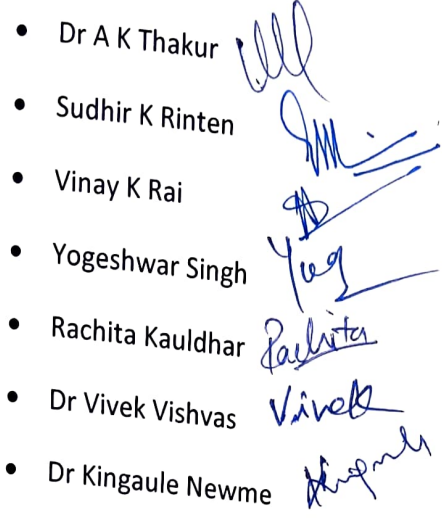 • Dr A K Thakur
• Sudhir K Rinten
• Vinay K Rai
• Yogeshwar Singh
• Rachita Kauldhar Rachita
• Dr Vivek Vishvas Vivek
• Dr Kingaule Newme